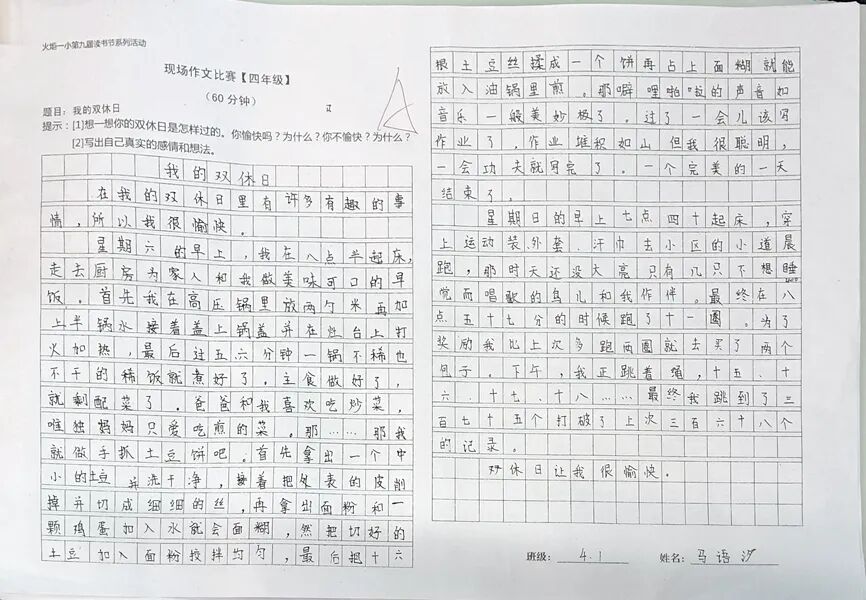 火焰一小第九届读书节系列活动
现场作文比赛【四年级】
（60分钟）
A
题目：我的双休日
提示：[1]想一想你的双休日是怎样过的。你愉快吗？为什么？你不愉快？为什么？
[2]写出自己真实的感情和想法。
我的双休日
在我的双休日里有许多有趣的事
情，所以我很愉快。
星期六的早上，我在八点半起床，
走去厨房为家人和我做美味可口的早
饭。首先我在高压锅里放两勺米再加
上半锅水接着盖上锅盖并在灶台上打
火加热，最后过五六分钟一锅不稀也
不干的稀饭就煮好了。主食做好了，
就剩配菜了。爸爸和我喜欢吃炒菜，
唯独妈妈只爱吃煎的菜。那……那我
就做手抓土豆饼吧。首先拿出一个中
小的土豆并洗干净，接着把外表的皮削
掉并切成细细的丝，再拿出面粉和一
颗鸡蛋加入水就会面糊，然把切好的
土豆加入面粉搅拌均匀，最后把十六
根土豆丝揉成一个饼再占上面糊就能
放入油锅里煎。那噼哩啪啦的声音如
音乐一般美妙极了。过了一会儿该写
作业了，作业堆积如山但我很聪明，
一会功夫就写完了。一个完美的一天
结束了。
星期日的早上七点四十起床，穿
上运动装、外套、汗巾去小区的小道晨
跑，那时天还没大亮只有几只不想睡
觉而唱歌的鸟儿和我作伴。最终在八
点五十七分的时候跑了十一圈。为了
奖励我比上次多跑两圈就去买了两个
包子。下午，我正跳着绳，十五、十
六、十七、十八……最终我跳到了三
百七十五个打破了上次三百六十八个
的记录。
双休日让我很愉快。
班级：4.1 姓名：马语汐